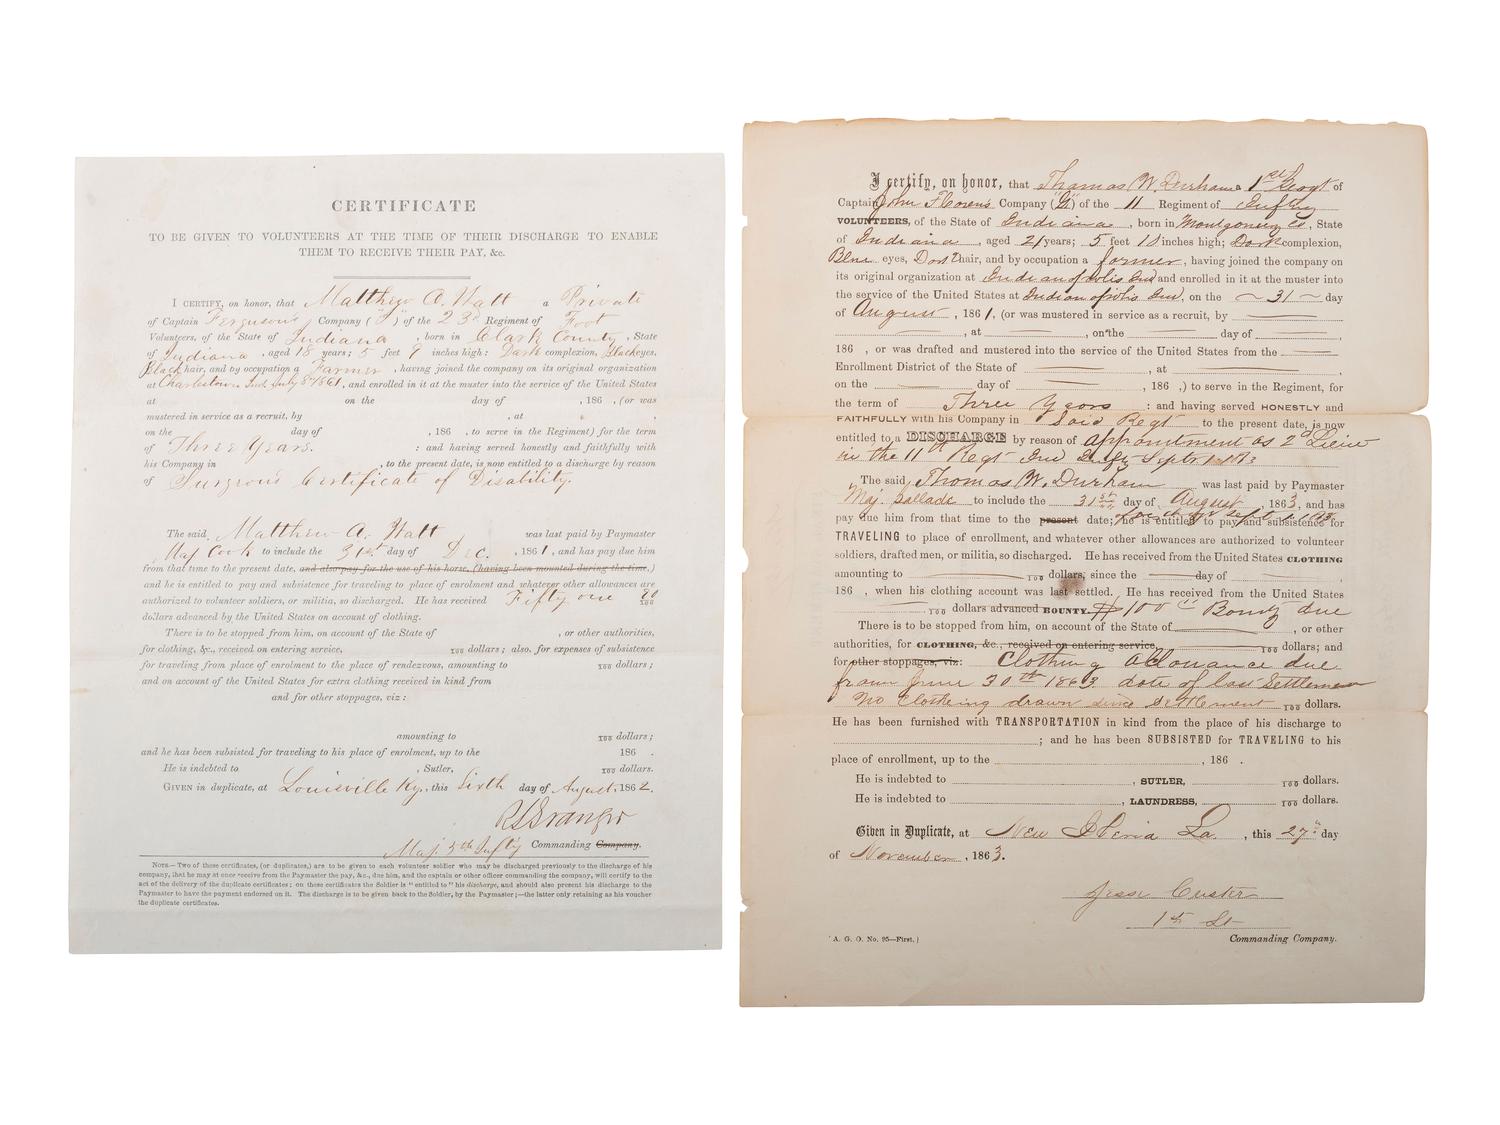 CERTIFICATE
TO BE GIVEN TO VOLUNTEERS AT THE TIME OF THEIR DISCHARGE TO ENABLE
THEM TO RECEIVE THEIR PAY, &c.
I CERTIFY, on honor, that Matthew A. Watt a Private
of Captain Ferguson's Company ( ) of the 23d Regiment of Foot
Volunteers, of the State of Indiana, born in Clark County, State
of Indiana, aged 18 years; 5 feet 9 inches high; Dark complexion, Black eyes,
Black hair, and by occupation a Farmer, having joined the company on its original organization
at Charlestown Ind. July 8th 1861, and enrolled in it at the muster into the service of the United States
at on the day of , 186 , (or was
mustered in service as a recruit, by , at ,
on the day of , 186 , to serve in the Regiment) for the term
of Three Years. : and having served honestly and faithfully with
his Company in , to the present date, is now entitled to a discharge by reason
of Surgeon's Certificate of Disability.
The said Matthew A. Watt was last paid by Paymaster
Maj Cook to include the 31st day of Dec. , 1861, and has pay due him
from that time to the present date, and also pay for the use of his horse, (having been mounted during the time,)
and he is entitled to pay and subsistence for traveling to place of enrolment and whatever other allowances are
authorized to volunteer soldiers, or militia, so discharged. He has received Fifty one 20/100
dollars advanced by the United States on account of clothing.
There is to be stopped from him, on account of the State of , or other authorities,
for clothing, &c., received on entering service, 100 dollars; also, for expenses of subsistence
for traveling from place of enrolment to the place of rendezvous, amounting to 100 dollars;
and on account of the United States for extra clothing received in kind from
and for other stoppages, viz:
amounting to 100 dollars;
and he has been subsisted for traveling to his place of enrolment, up to the 186 .
He is indebted to , Sutler, 100 dollars.
GIVEN in duplicate, at Louisville Ky., this Sixth day of August, 1862.
R S Granger
Maj. 5th Infty Commanding Company.
NOTE.—Two of these certificates, (or duplicates,) are to be given to each volunteer soldier who may be discharged previously to the discharge of his
company, that he may at once receive from the Paymaster the pay, &c., due him, and the captain or other officer commanding the company, will certify to the
act of the delivery of the duplicate certificates; on these certificates the Soldier is "entitled to" his discharge, and should also present his discharge to the
Paymaster to have the payment endorsed on it. The discharge is to be given back to the Soldier, by the Paymaster;—the latter only retaining as his voucher
the duplicate certificates.
I certify, on honor, that Thomas W. Durham a 1st Sergt of
Captain John F. Company ("G") of the 11 Regiment of Infty
VOLUNTEERS, of the State of Indiana, born in Montgomery Co, State
of Indiana, aged 21 years; 5 feet 10 inches high; Dark complexion,
Blue eyes, Dark hair, and by occupation a farmer, having joined the company on
its original organization at Indianapolis Ind and enrolled in it at the muster into
the service of the United States at Indianapolis Ind, on the 31 day
of August, 1861, (or was mustered in service as a recruit, by
, at , on the day of ,
186 , or was drafted and mustered into the service of the United States from the
Enrollment District of the State of , at ,
on the day of , 186 ,) to serve in the Regiment, for
the term of Three Years : and having served HONESTLY and
FAITHFULLY with his Company in Said Regt to the present date, is now
entitled to a DISCHARGE by reason of appointment as 2d Lieu
in the 11th Regt Ind Infty Sept 1 1863
The said Thomas W. Durham was last paid by Paymaster
Maj. Sallade to include the 31st day of August, 1863, and has
pay due him from that time to the present date; he is entitled to pay and subsistence for
TRAVELING to place of enrollment, and whatever other allowances are authorized to volunteer
soldiers, drafted men, or militia, so discharged. He has received from the United States CLOTHING
amounting to 100 dollars, since the day of ,
186 , when his clothing account was last settled. He has received from the United States
100 dollars advanced BOUNTY. $100 Bounty due
There is to be stopped from him, on account of the State of , or other
authorities, for CLOTHING, &c., received on entering service, 100 dollars; and
for other stoppages, viz: Clothing Allowance due
from June 30th 1863 date of last Settlement
No Clothing drawn since Settlement 100 dollars.
He has been furnished with TRANSPORTATION in kind from the place of his discharge to
; and he has been SUBSISTED for TRAVELING to his
place of enrollment, up to the , 186 .
He is indebted to , SUTLER, 100 dollars.
He is indebted to , LAUNDRESS, 100 dollars.
Given in Duplicate, at New Iberia La., this 27th day
of November, 1863.
Jesse Custer
1st Lt
(A. G. O. No. 95—First.) Commanding Company.